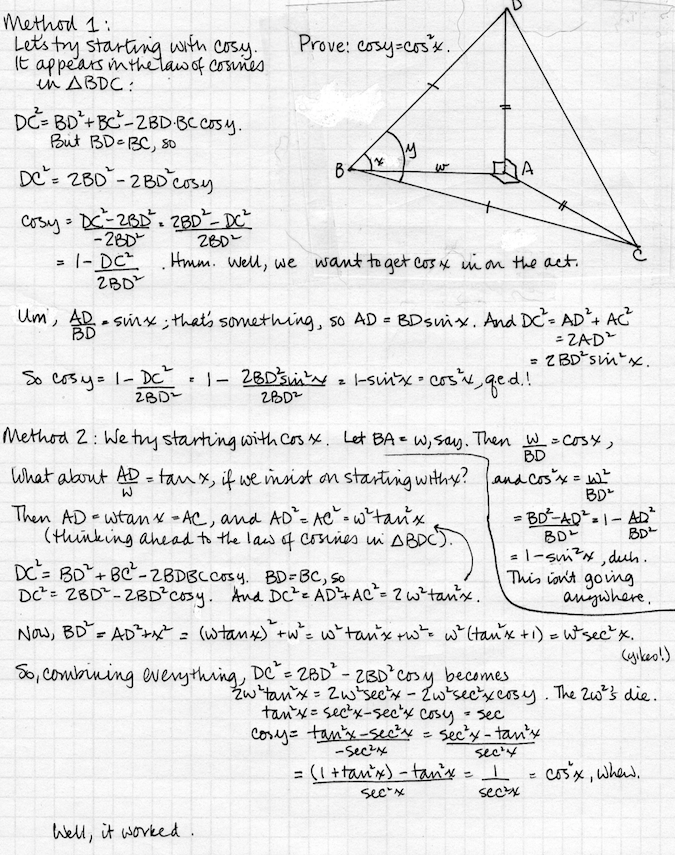 Method 1:
Let's try starting with cosy.
It appears in the law of cosines
in △BDC:
Prove: cosy=cos²x.
D
B
x
y
w
A
C
DC²=BD²+BC²-2BD·BC cosy.
But BD=BC, so
DC²=2BD²-2BD²cosy
cosy = DC²-2BD²/-2BD² = 2BD²-DC²/2BD²
= 1-DC²/2BD². Hmm. Well, we want to get cosx in on the act.
Um, AD/BD = sinx; that's something, so AD = BDsinx. And DC²=AD²+AC²
=2AD²
=2BD²sin²x.
So cosy=1-DC²/2BD² = 1-2BD²sin²x/2BD² = 1-sin²x = cos²x, q.e.d.!
Method 2: We try starting with cosx. Let BA=w, say. Then w/BD=cosx,
and cos²x=w²/BD²
=BD²-AD²/BD²=1-AD²/BD²
=1-sin²x, duh.
This isn't going
anywhere.
What about AD/w=tanx, if we insist on starting with x?
Then AD=wtanx=AC, and AD²=AC²=w²tan²x
(thinking ahead to the law of cosines in △BDC).
DC²=BD²+BC²-2BDBCcosy. BD=BC, so
DC²=2BD²-2BD²cosy. And DC²=AD²+AC²=2w²tan²x.
Now, BD²=AD²+x²=(wtanx)²+w²=w²tan²x+w²=w²(tan²x+1)=w²sec²x.
(yikes!)
So, combining everything, DC²=2BD²-2BD²cosy becomes
2w²tan²x=2w²sec²x-2w²sec²xcosy. The 2w²'s die.
tan²x=sec²x-sec²x cosy = sec
cosy=tan²x-sec²x/-sec²x = sec²x-tan²x/sec²x
=(1+tan²x)-tan²x/sec²x = 1/sec²x = cos²x, whew.
Well, it worked.